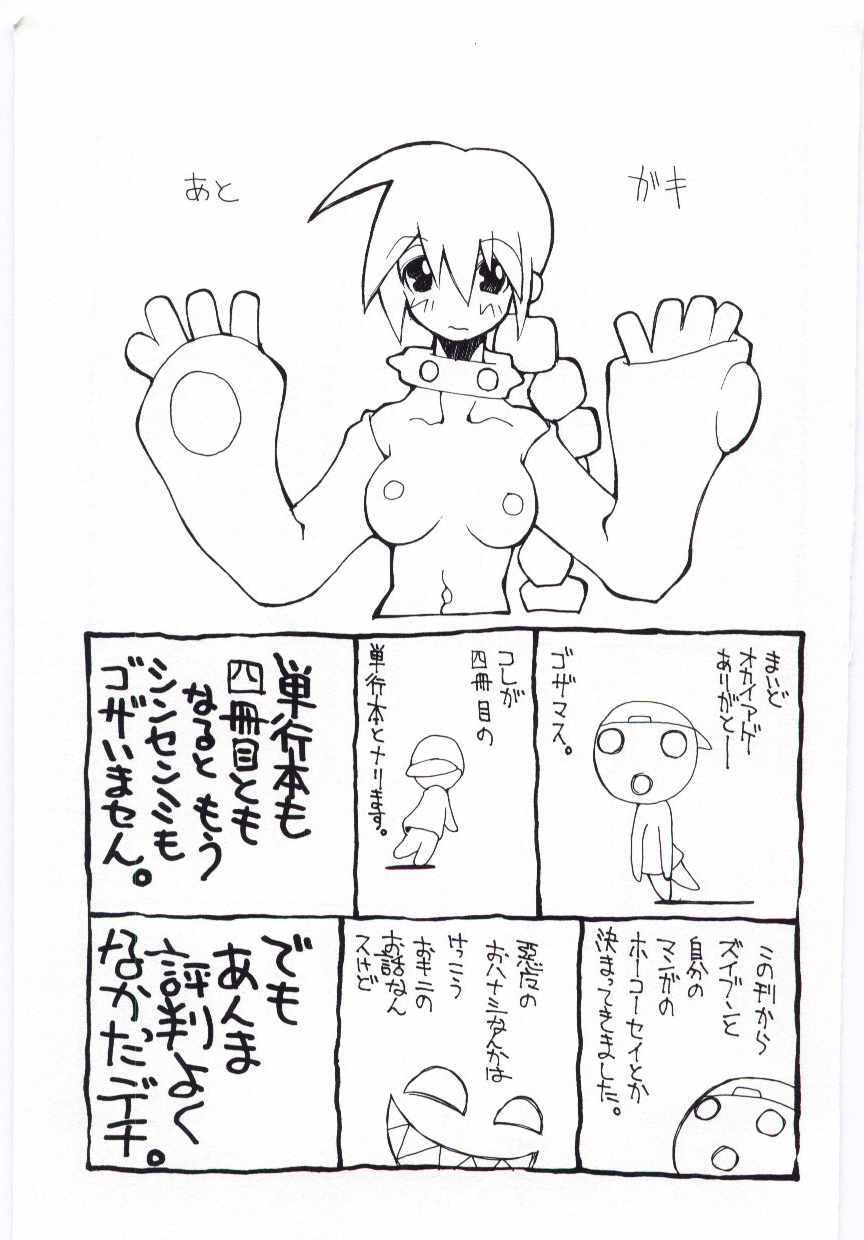 あと
ガキ
まいど
オカイアゲ
ありがとー
ゴザマス。
コレが
四冊目の
単行本とナリます。
単行本も
四冊目とも
なるともう
シンセンミも
ゴザいません。
この刊から
ズイブンと
自分の
マンガの
ホーコーセイとか
決まってきました。
悪役の
おハナシなんかは
けっこう
おキニの
お話なん
スけど
でも
あんま
評判よく
なかったデチ。